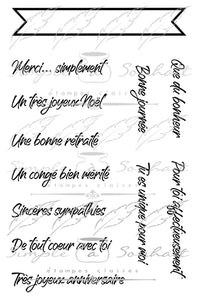 Merci... simplement
Un très joyeux Noël
Une bonne retraite
Un congé bien mérité
Sincères sympathies
De tout coeur avec toi
Très joyeux anniversaire
Bonne journée
Que de bonheur
Tu es unique pour moi
Pour toi affectueusement
Simple à Souhait
étampes claires